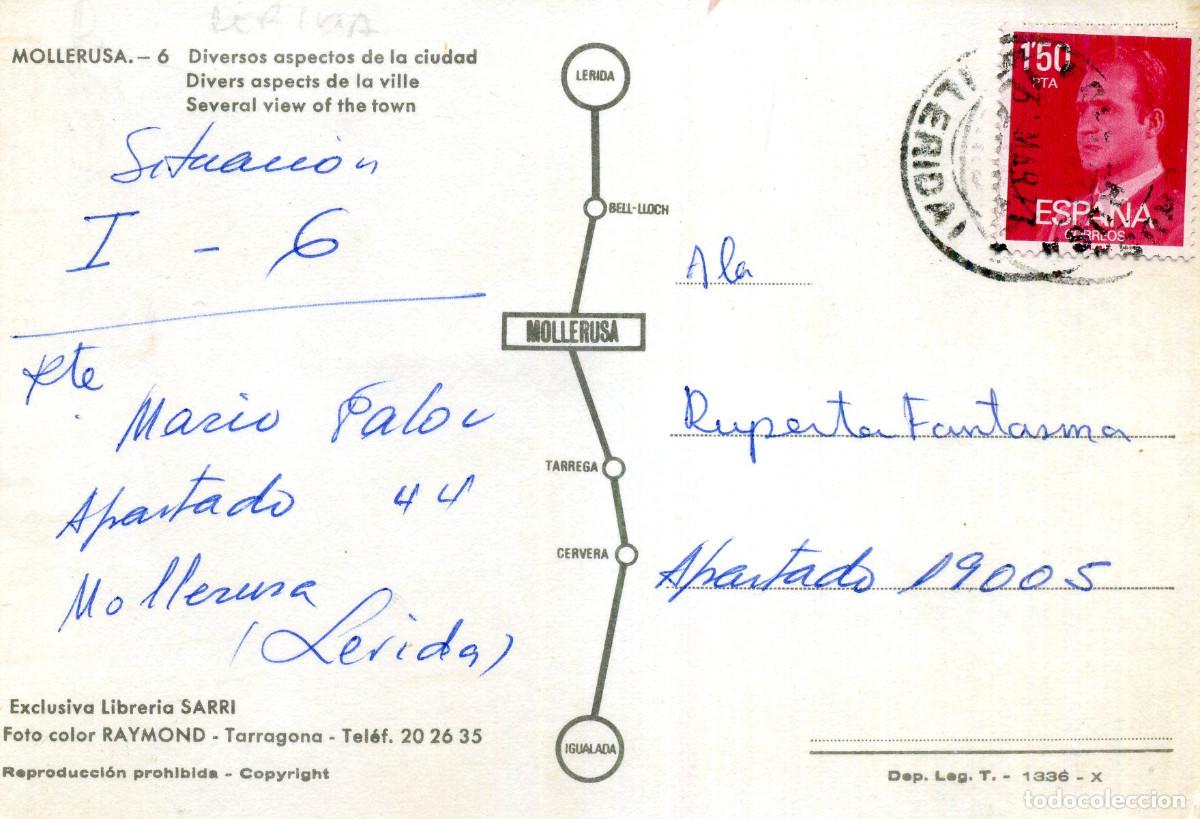 LERIDA
MOLLERUSA.- 6 Diversos aspectos de la ciudad
Divers aspects de la ville
Several view of the town
Situación
I - 6
Rte
Mario Palou
Apartado 44
Mollerusa
(Lerida)
Exclusiva Libreria SARRI
Foto color RAYMOND - Tarragona - Teléf. 20 26 35
Reproducción prohibida - Copyright
LERIDA
BELL-LLOCH
MOLLERUSA
TARREGA
CERVERA
IGUALADA
1'50
PTA
ESPAÑA
CORREOS
(LERIDA)
MAR
A la
Ruperta Fantasma
Apartado 19005
Dep. Leg. T. - 1336 - X
todocoleccion